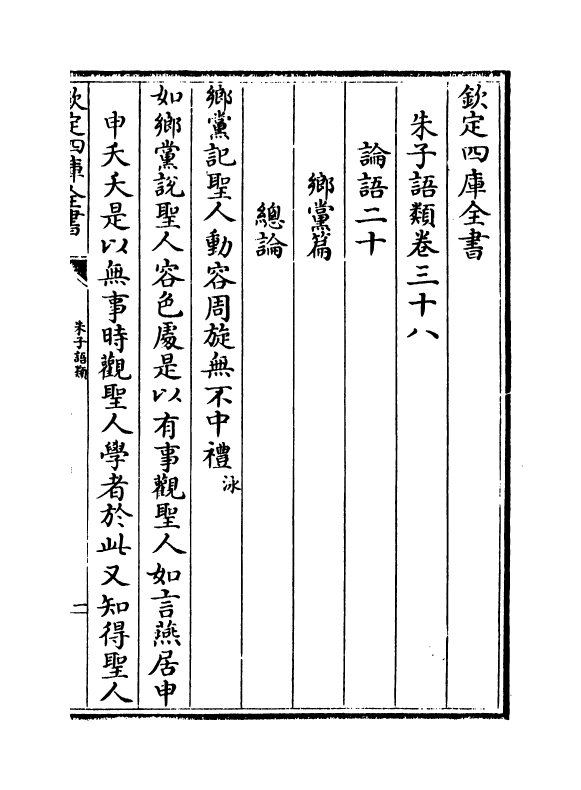 欽定四庫全書
朱子語類卷三十八
論語二十
鄉黨篇
總論
鄉黨記聖人動容周旋無不中禮泳
如鄉黨說聖人容色處是以有事觀聖人如言燕居申
申夭夭是以無事時觀聖人學者於此又知得聖人
欽定四庫全書
朱子語類
一